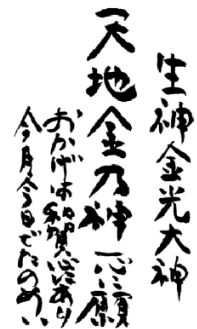 生神金光大神
天地金乃神 一心ニ願
おかげは和賀心にあり
今月今日でたのめい